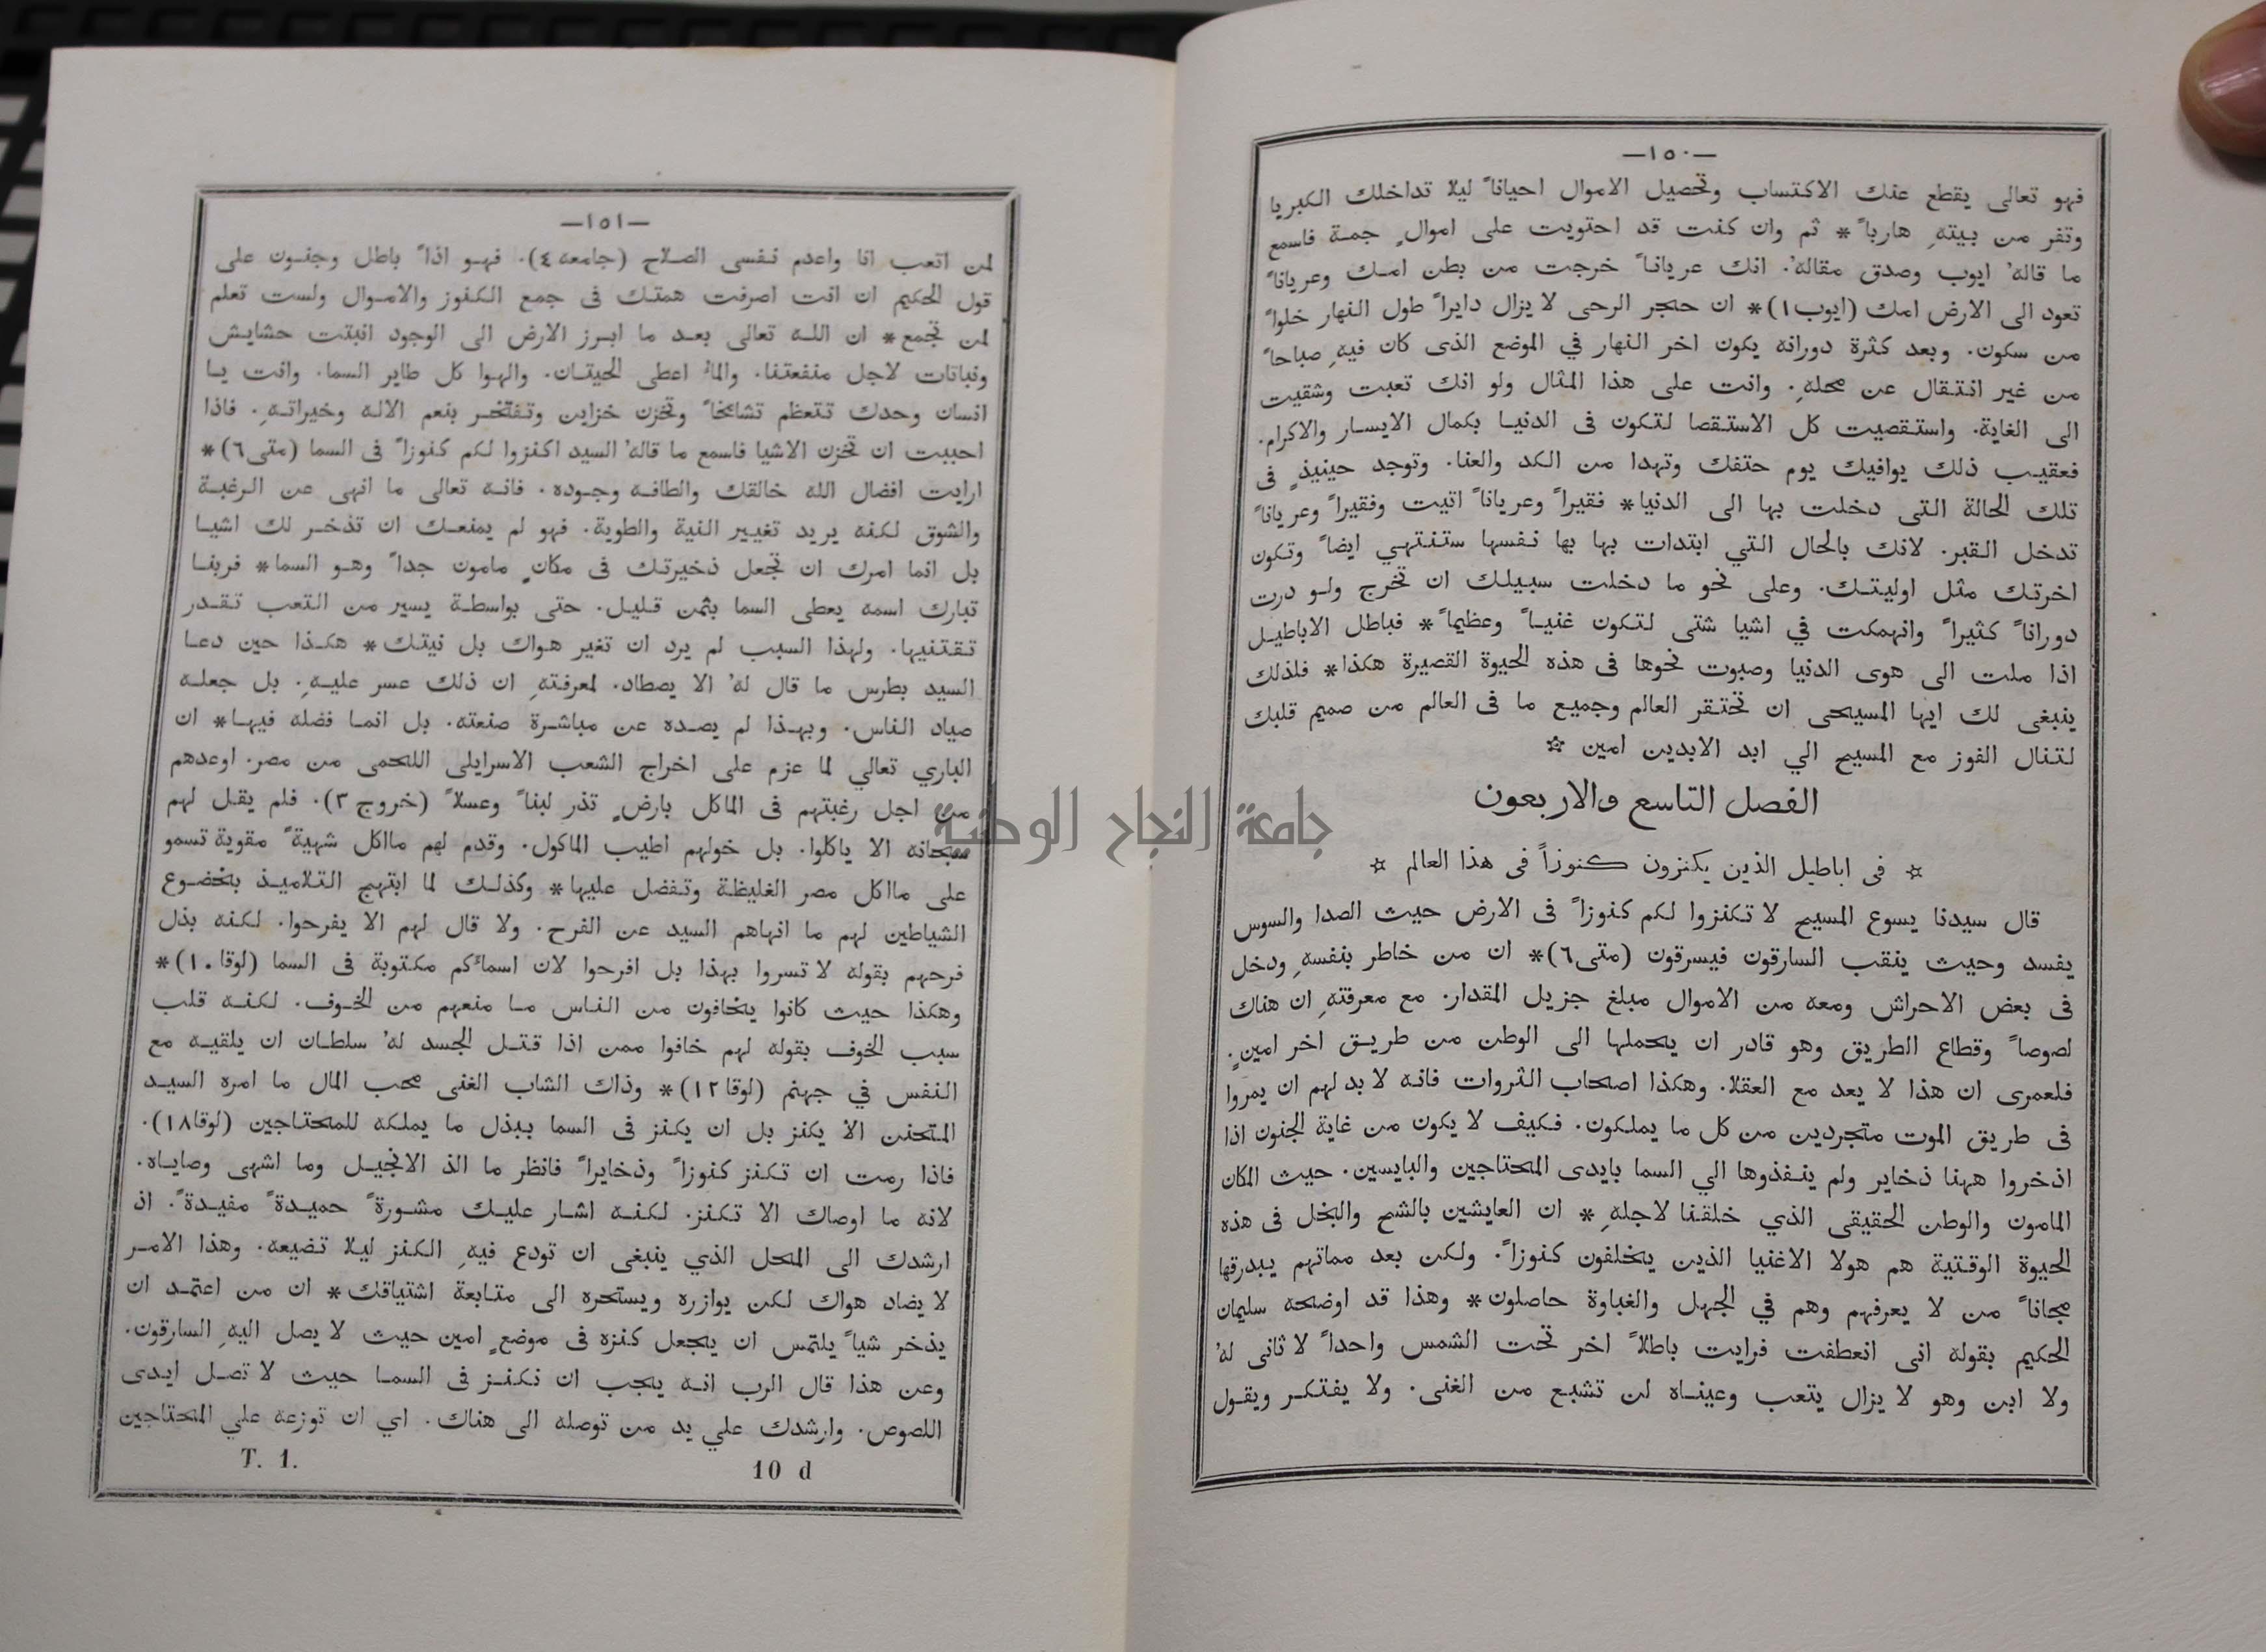 —١٥٠—
فهو تعالى يقطع عنك الاكتساب وتحصيل الاموال احياناً ليلا تداخلك الكبريا
وتفر من بيتهِ هارباً* ثم وان كنت قد احتويت على اموالٍ جمة فاسمع
ما قالهُ ايوب وصدق مقالهُ. انك عرياناً خرجت من بطن امك وعرياناً
تعود الى الارض امك (ايوب١)* ان حجر الرحى لا يزال دايراً طول النهار خلواً
من سكون. وبعد كثرة دورانه يكون اخر النهار في الموضع الذى كان فيهِ صباحاً
من غير انتقال عن محلهِ. وانت على هذا المثال ولو انك تعبت وشقيت
الى الغاية. واستقصيت كل الاستقصا لتكون فى الدنيا بكمال الايسار والاكرام.
فعقيب ذلك يوافيك يوم حتفك وتهدا من الكد والعنا. وتوجد حينيذٍ فى
تلك الحالة التى دخلت بها الى الدنيا* فقيراً وعرياناً اتيت وفقيراً وعرياناً
تدخل القبر. لانك بالحال التي ابتدات بها بها نفسها ستنتهي ايضاً وتكون
اخرتك مثل اوليتك. وعلى نحو ما دخلت سبيلك ان تخرج ولو درت
دوراناً كثيراً وانهمكت في اشيا شتى لتكون غنياً وعظيماً* فباطل الاباطيل
اذا ملت الى هوى الدنيا وصبوت نحوها فى هذه الحيوة القصيرة هكذا* فلذلك
ينبغى لك ايها المسيحى ان تحتقر العالم وجميع ما فى العالم من صميم قلبك
لتنال الفوز مع المسيح الي ابد الابدين امين ☆
الفصل التاسع والاربعون
☆ فى اباطيل الذين يكنزون كنوزاً فى هذا العالم ☆
قال سيدنا يسوع المسيح لا تكنزوا لكم كنوزاً فى الارض حيث الصدا والسوس
يفسد وحيث ينقب السارقون فيسرقون (متى٦)* ان من خاطر بنفسهِ ودخل
فى بعض الاحراش ومعه من الاموال مبلغ جزيل المقدار. مع معرفتهِ ان هناك
لصوصاً وقطاع الطريق وهو قادر ان يحملها الى الوطن من طريق اخر امينٍ.
فلعمرى ان هذا لا يعد مع العقلا. وهكذا اصحاب الثروات فانه لا بد لهم ان يمروا
فى طريق الموت متجردين من كل ما يملكون. فكيف لا يكون من غاية الجنون اذا
اذخروا ههنا ذخاير ولم ينفذوها الي السما بايدى المحتاجين والبايسين. حيث المكان
المامون والوطن الحقيقى الذي خلقنا لاجلهِ* ان العايشين بالشح والبخل فى هذه
الحيوة الوقتية هم هولا الاغنيا الذين يخلفون كنوزاً. ولكن بعد مماتهم يبدرقها
مجاناً من لا يعرفهم وهم في الجهل والغباوة حاصلون* وهذا قد اوضحه سليمان
الحكيم بقوله انى انعطفت فرايت باطلاً اخر تحت الشمس واحداً لا ثانى لهُ
ولا ابن وهو لا يزال يتعب وعيناه لن تشبع من الغنى. ولا يفتكر ويقول
—١٥١—
لمن اتعب انا واعدم نفسى الصلاح (جامعه ٤). فهو اذاً باطل وجنون على
قول الحكيم ان انت اصرفت همتك فى جمع الكنوز والاموال ولست تعلم
لمن تجمع* ان الله تعالى بعد ما ابرز الارض الى الوجود انبتت حشايش
ونباتات لاجل منفعتنا. والمأ اعطى الحيتان. والهوا كل طاير السما. وانت يا
انسان وحدك تتعظم تشامخاً وتخزن خزاين وتفتخر بنعم الاله وخيراتهِ. فاذا
احببت ان تخزن الاشيا فاسمع ما قالهُ السيد اكنزوا لكم كنوزاً فى السما (متى٦)*
ارايت افضال الله خالقك والطافه وجوده. فانه تعالى ما انهى عن الرغبة
والشوق لكنه يريد تغيير النية والطوية. فهو لم يمنعك ان تذخر لك اشيا
بل انما امرك ان تجعل ذخيرتك فى مكانٍ مامون جداً وهو السما* فربنا
تبارك اسمه يعطى السما بثمن قليل. حتى بواسطة يسير من التعب تقدر
تقتنيها. ولهذا السبب لم يرد ان تغير هواك بل نيتك* هكذا حين دعا
السيد بطرس ما قال لهُ الا يصطاد. لمعرفتهِ ان ذلك عسر عليهِ. بل جعله
صياد الناس. وبهذا لم يصده عن مباشرة صنعته. بل انما فضله فيها* ان
الباري تعالي لما عزم على اخراج الشعب الاسرايلى اللحمى من مصر. اوعدهم
من اجل رغبتهم فى الماكل بارضٍ تذر لبناً وعسلاً (خروج ٣). فلم يقل لهم
سبحانه الا ياكلوا. بل خولهم اطيب الماكول. وقدم لهم مااكل شهيةً مقوية تسمو
على مااكل مصر الغليظة وتفضل عليها* وكذلك لما ابتهج التلاميذ بخضوع
الشياطين لهم ما انهاهم السيد عن الفرح. ولا قال لهم الا يفرحوا. لكنه بذل
فرحهم بقوله لا تسروا بهذا بل افرحوا لان اسمائكم مكتوبة فى السما (لوقا١٠)*
وهكذا حيث كانوا يخافون من الناس ما منعهم من الخوف. لكنه قلب
سبب الخوف بقوله لهم خافوا ممن اذا قتل الجسد لهُ سلطان ان يلقيه مع
النفس في جهنم (لوقا١٢)* وذاك الشاب الغنى محب المال ما امره السيد
المتحنن الا يكنز بل ان يكنز فى السما ببذل ما يملكه للمحتاجين (لوقا١٨).
فاذا رمت ان تكنز كنوزاً وذخايراً فانظر ما الذ الانجيل وما اشهى وصاياه.
لانه ما اوصاك الا تكنز. لكنه اشار عليك مشورةً حميدةً مفيدةً. اذ
ارشدك الى المحل الذي ينبغى ان تودع فيهِ الكنز ليلا تضيعه. وهذا الامر
لا يضاد هواك لكن يوازره ويستحره الى متابعة اشتياقك* ان من اعتمد ان
يذخر شياً يلتمس ان يجعل كنزه فى موضعٍ امين حيث لا يصل اليهِ السارقون.
وعن هذا قال الرب انه يجب ان نكنز فى السما حيث لا تصل ايدى
اللصوص. وارشدك علي يد من توصله الى هناك. اي ان توزعه علي المحتاجين
T. 1. 10 d
جامعة النجاح الوطنية